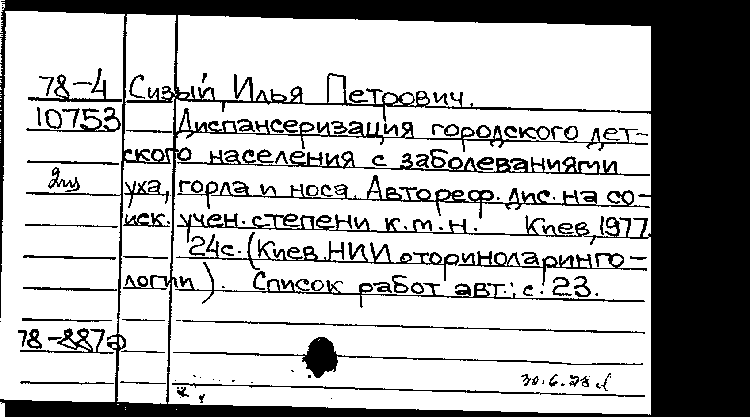 78-4 Сизый, Илья Петрович.
10753 Диспансеризация городского дет-
ского населения с заболеваниями
уха, горла и носа. Автореф. дис. на со-
иск. учен. степени к.м.н. Киев, 1977.
24с. (Киев. НИИ оториноларинго-
логии). Список работ авт.: с. 23.
78-887а
30.6.78